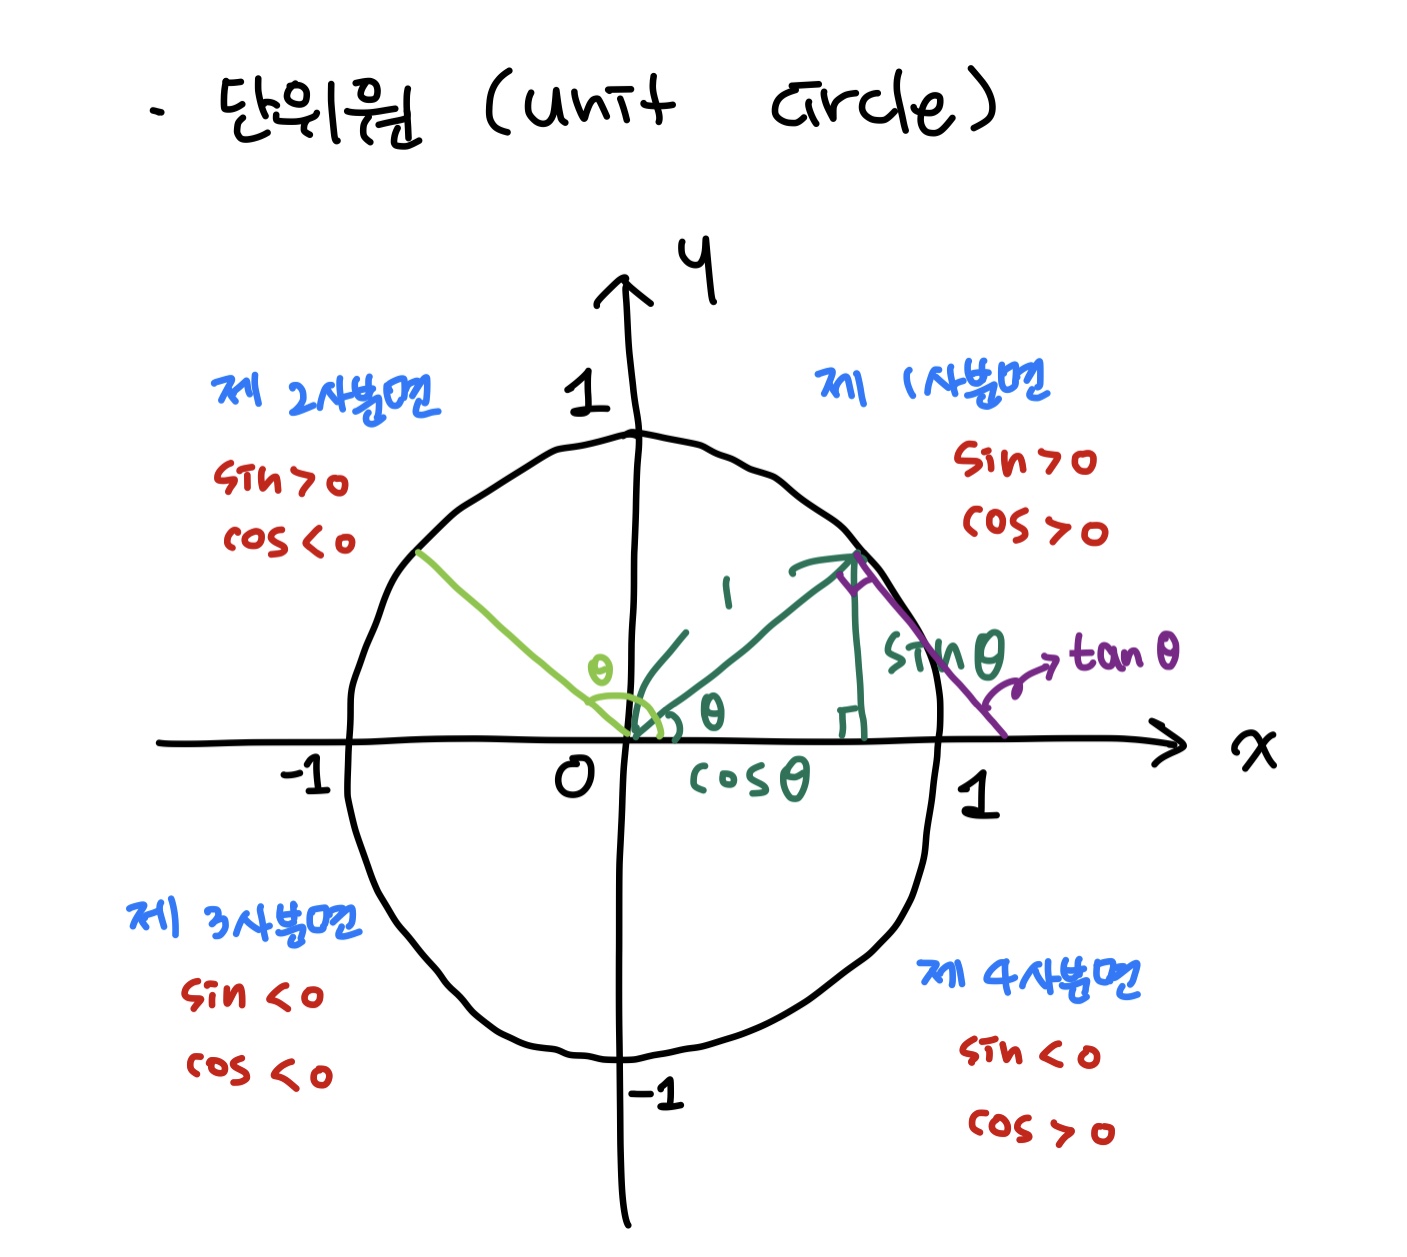 · 단위원 (unit circle)
y
제 2사분면
1
제 1사분면
sin>0
cos<0
sin>0
cos>0
1
θ
θ
sinθ
tanθ
-1
0
cosθ
1
x
제 3사분면
sin<0
cos<0
제 4사분면
sin<0
cos>0
-1